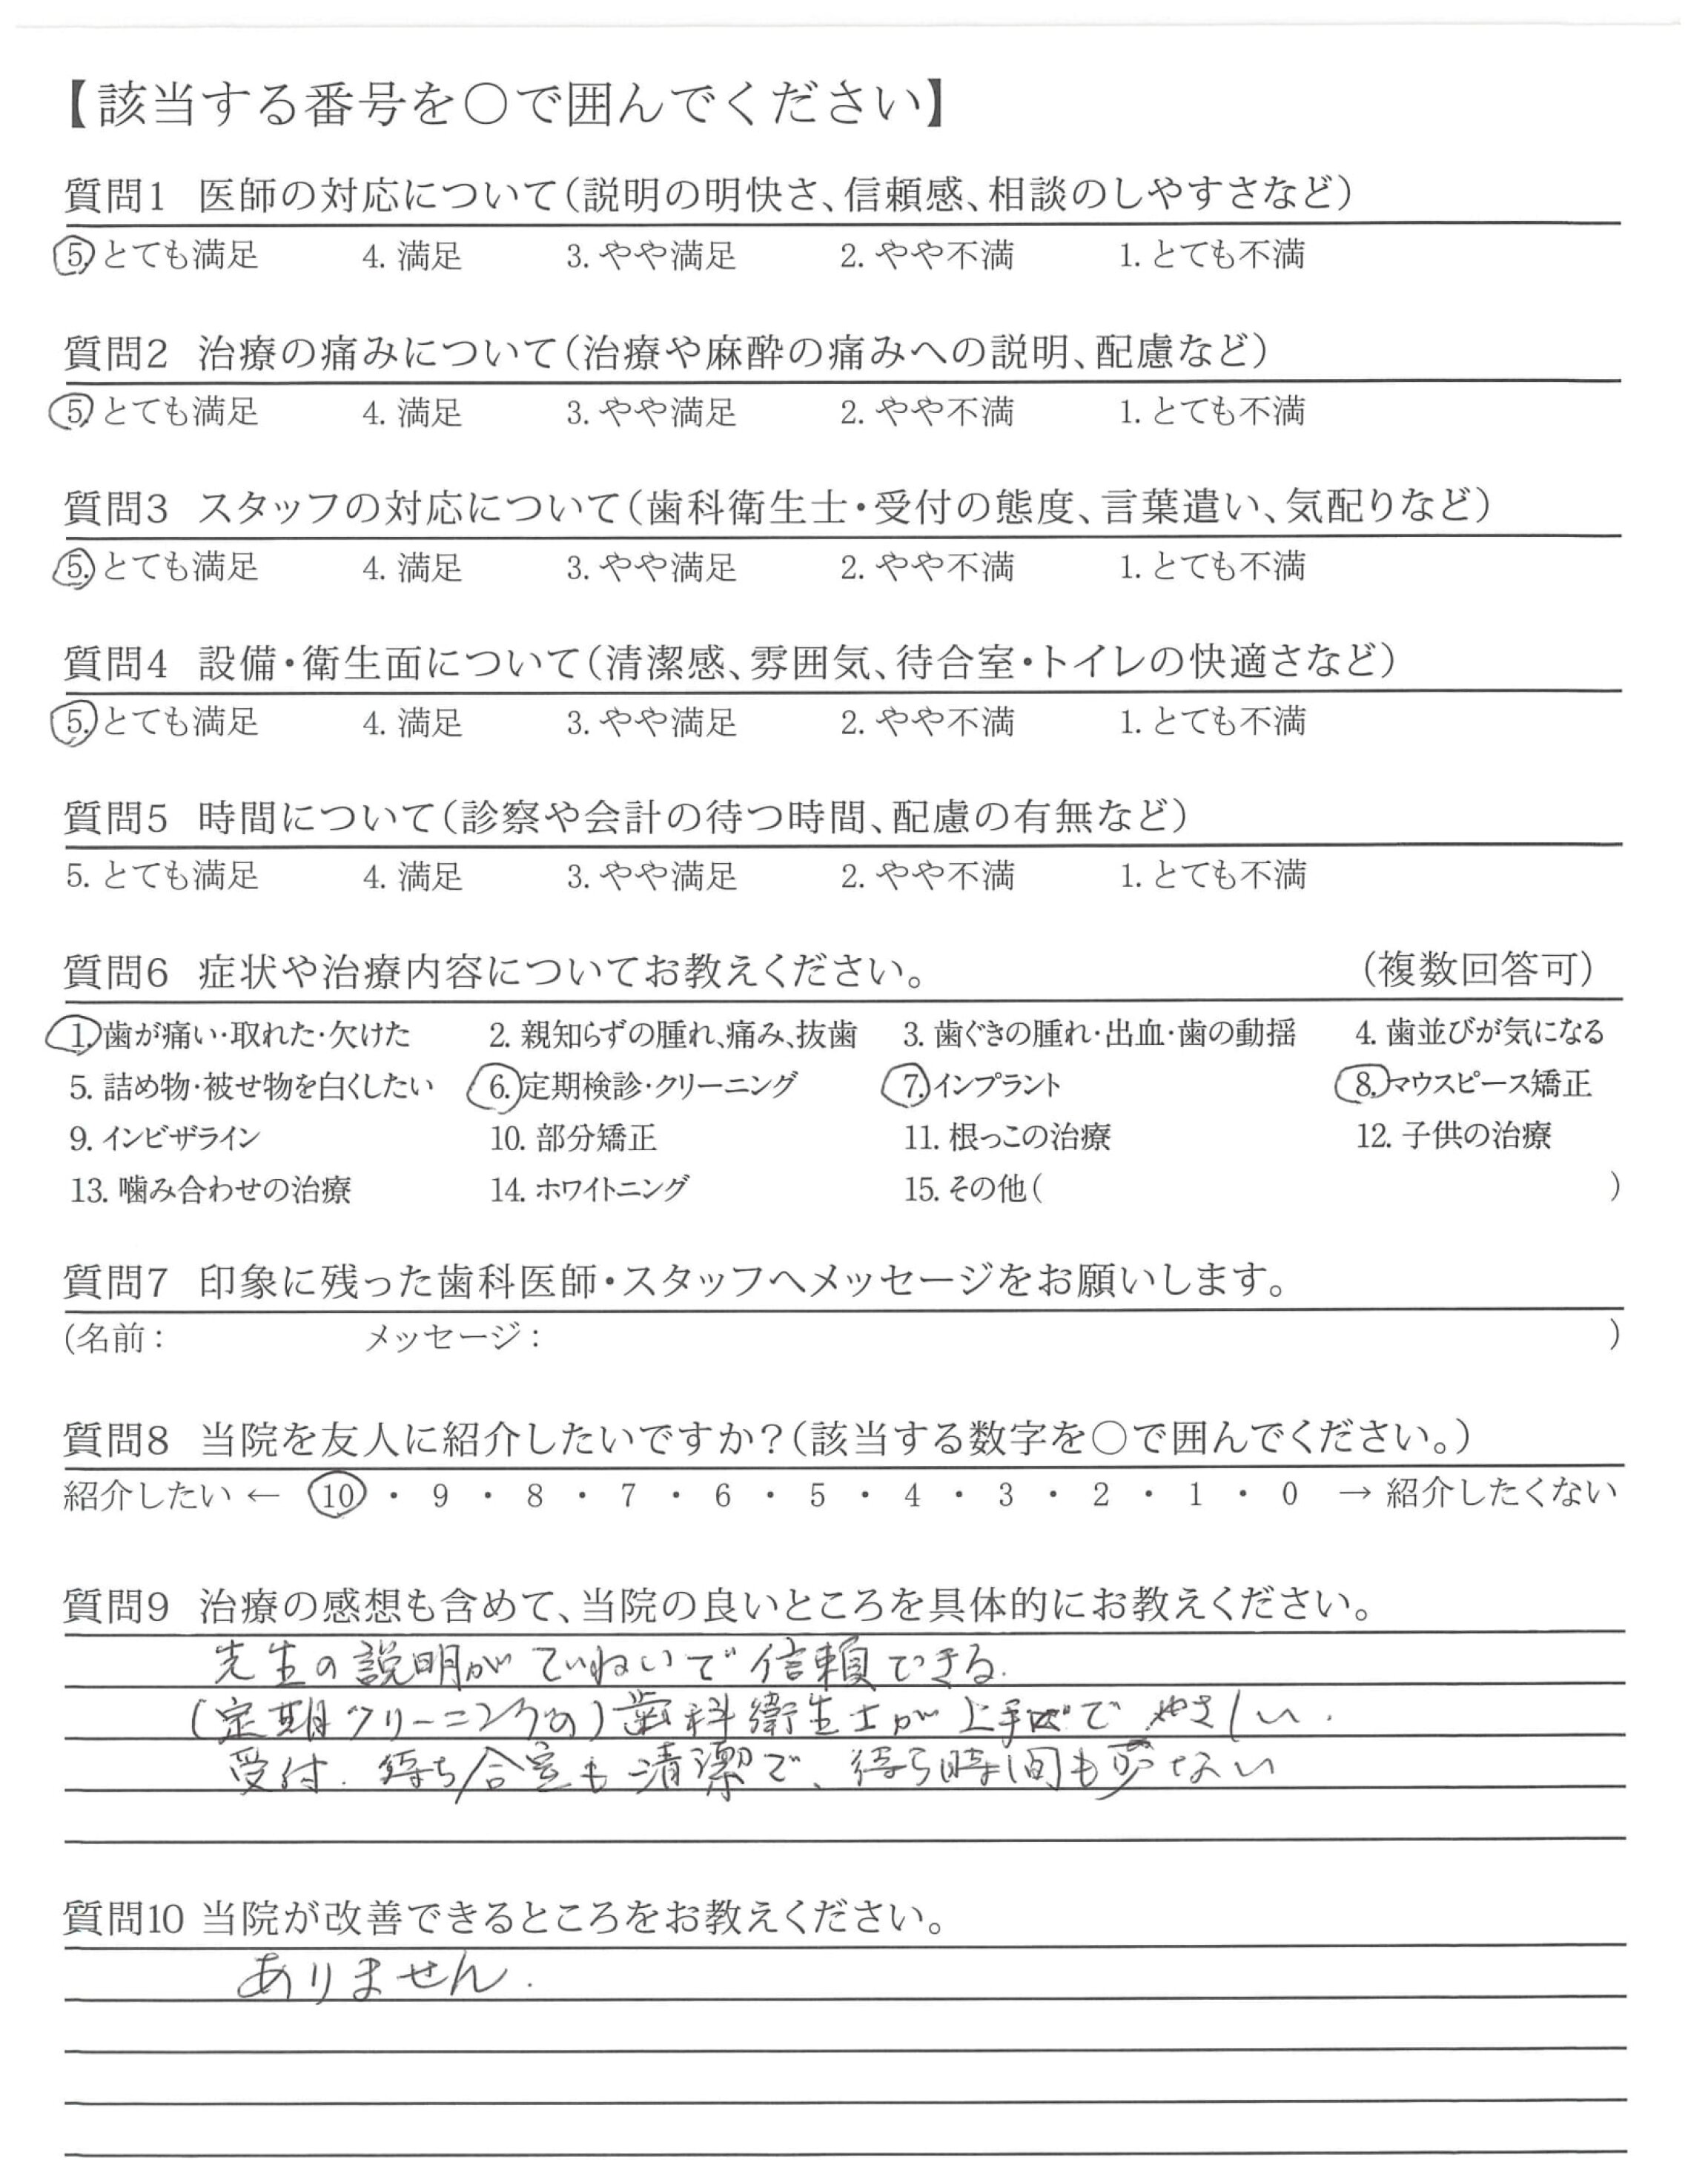 【該当する番号を〇で囲んでください】
質問1 医師の対応について(説明の明快さ、信頼感、相談のしやすさなど)
5. とても満足 4. 満足 3. やや満足 2. やや不満 1. とても不満
質問2 治療の痛みについて(治療や麻酔の痛みへの説明、配慮など)
5. とても満足 4. 満足 3. やや満足 2. やや不満 1. とても不満
質問3 スタッフの対応について(歯科衛生士・受付の態度、言葉遣い、気配りなど)
5. とても満足 4. 満足 3. やや満足 2. やや不満 1. とても不満
質問4 設備・衛生面について(清潔感、雰囲気、待合室・トイレの快適さなど)
5. とても満足 4. 満足 3. やや満足 2. やや不満 1. とても不満
質問5 時間について(診察や会計の待つ時間、配慮の有無など)
5. とても満足 4. 満足 3. やや満足 2. やや不満 1. とても不満
質問6 症状や治療内容についてお教えください。 (複数回答可)
1. 歯が痛い・取れた・欠けた 2. 親知らずの腫れ、痛み、抜歯 3. 歯ぐきの腫れ・出血・歯の動揺 4. 歯並びが気になる
5. 詰め物・被せ物を白くしたい 6. 定期検診・クリーニング 7. インプラント 8. マウスピース矯正
9. インビザライン 10. 部分矯正 11. 根っこの治療 12. 子供の治療
13. 噛み合わせの治療 14. ホワイトニング 15. その他( )
質問7 印象に残った歯科医師・スタッフへメッセージをお願いします。
(名前: メッセージ: )
質問8 当院を友人に紹介したいですか?(該当する数字を〇で囲んでください。)
紹介したい ← 10 ・ 9 ・ 8 ・ 7 ・ 6 ・ 5 ・ 4 ・ 3 ・ 2 ・ 1 ・ 0 → 紹介したくない
質問9 治療の感想も含めて、当院の良いところを具体的にお教えください。
先生の説明がていねいで信頼できる.
(定期クリーニングの)歯科衛生士が上手で やさしい.
受付. 待ち合室も清潔で、待ち時間も少ない
質問10 当院が改善できるところをお教えください。
ありません.